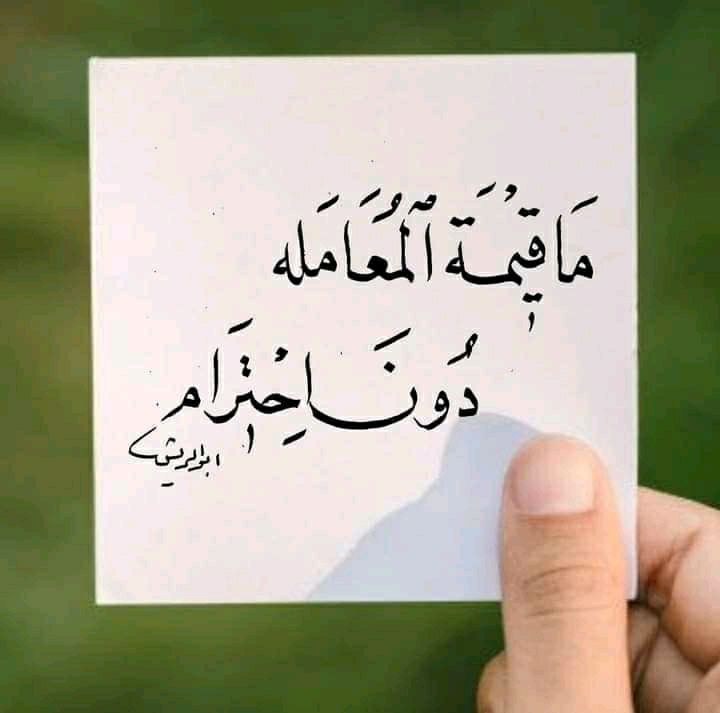 مَا قِيْمَةَ ٱلْمُعَامَله
دُونَ احْتِرَام
ابوالريش